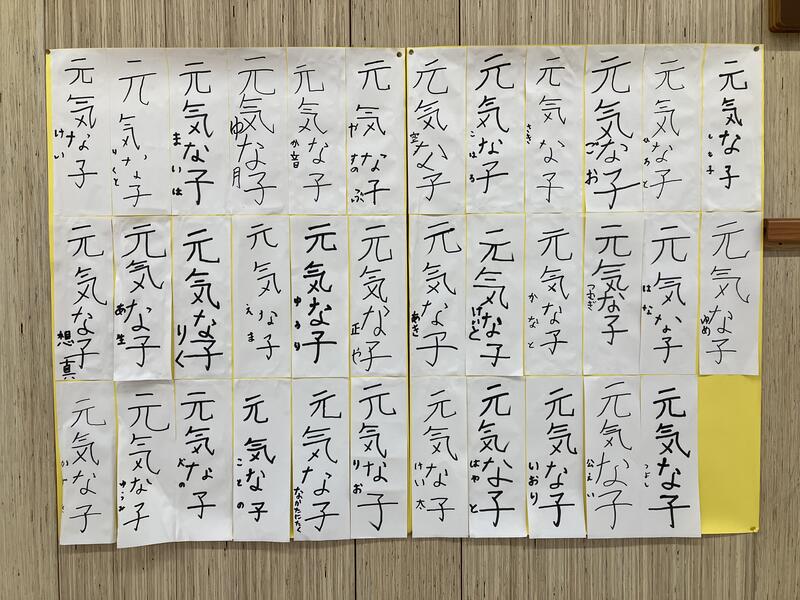 元気な子
元気な子
ひろと
元気な子
ごお
元気な子
さき
元気な子
こはる
元気な子
空
元気な子
やすのぶ
元気な子
か音
元気な子
ゆ月
元気な子
まいは
元気な子
りくと
元気な子
けい
元気な子
ゆめ
元気な子
はな
元気な子
つむぎ
元気な子
かなと
元気な子
けいと
元気な子
あき
元気な子
正や
元気な子
ゆるり
元気な子
えま
元気な子
りく
元気な子
あ生
元気な子
想真
元気な子
つよし
元気な子
公えい
元気な子
いおり
元気な子
はやと
元気な子
けい太
元気な子
りお
元気な子
ながたにたく
元気な子
ことの
元気な子
元気な子
元気な子